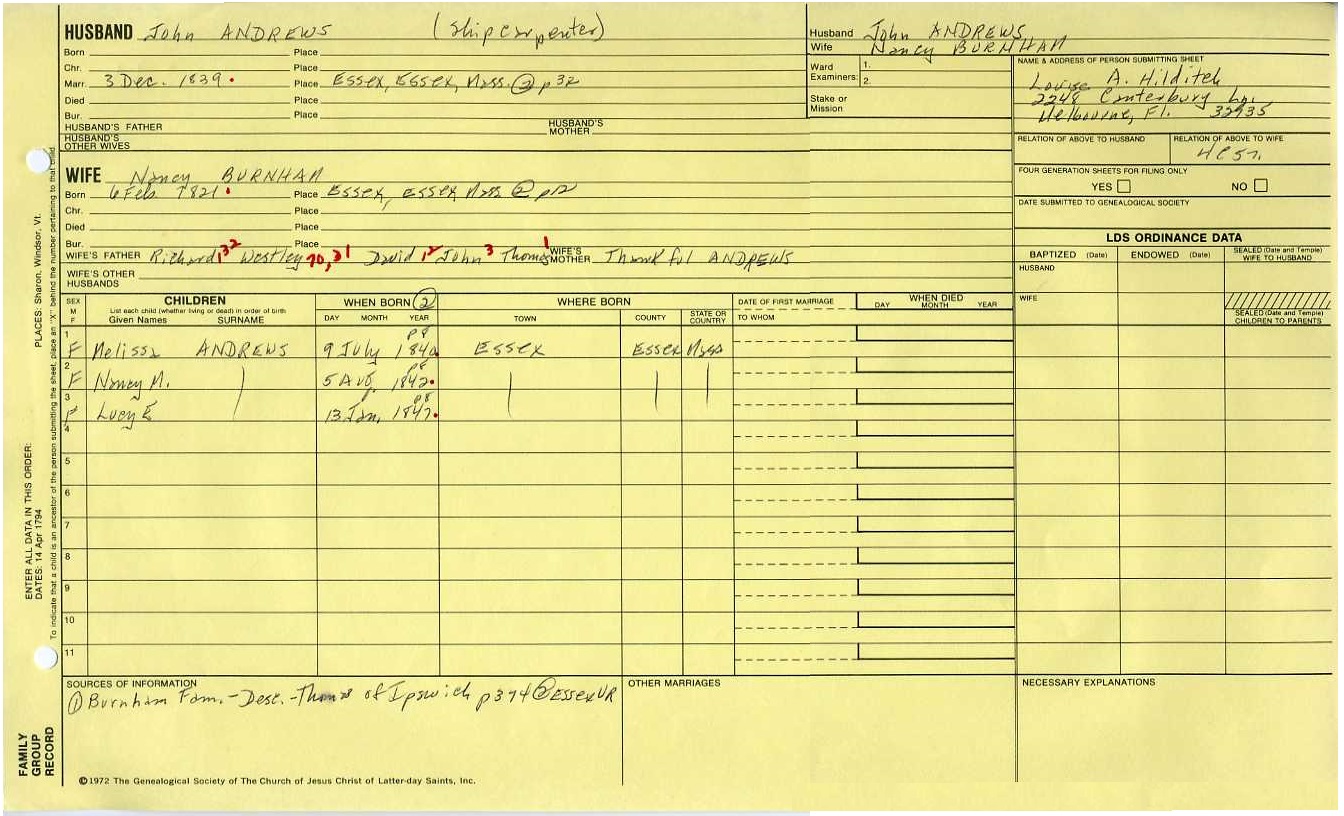 HUSBAND John ANDREWS (Shipcarpenter)
Born Place
Chr. Place
Marr. 3 Dec. 1839. Place Essex, Essex, Mass. ② p32
Died Place
Bur. Place
HUSBAND'S FATHER HUSBAND'S MOTHER
HUSBAND'S OTHER WIVES
Husband John ANDREWS
Wife Nancy BURNHAM
Ward Examiners: 1.
2.
Stake or Mission
NAME & ADDRESS OF PERSON SUBMITTING SHEET
Louise A. Hilditch
2248 Canterbury Ln.
Melbourne, Fl. 32935
RELATION OF ABOVE TO HUSBAND RELATION OF ABOVE TO WIFE
FOUR GENERATION SHEETS FOR FILING ONLY
YES NO
DATE SUBMITTED TO GENEALOGICAL SOCIETY
WIFE Nancy BURNHAM
Born 6 Feb. 1821. Place Essex, Essex, Mass ② p12
Chr. Place
Died Place
Bur. Place
WIFE'S FATHER Richard Westley David John Thomas WIFE'S MOTHER Thankful ANDREWS
WIFE'S OTHER HUSBANDS
LDS ORDINANCE DATA
BAPTIZED (Date) ENDOWED (Date) SEALED (Date and Temple) WIFE TO HUSBAND
HUSBAND
WIFE
SEALED (Date and Temple) CHILDREN TO PARENTS
SEX M F CHILDREN WHEN BORN ② WHERE BORN DATE OF FIRST MARRIAGE WHEN DIED
List each child (whether living or dead) in order of birth
Given Names SURNAME DAY MONTH YEAR TOWN COUNTY STATE OR COUNTRY TO WHOM DAY MONTH YEAR
1 p8
F Melissa ANDREWS 9 July 1840. Essex Essex Mass
2 p8
F Nancy M. 5 Aug. 1842.
3 p8
F Lucy E 13 Jan. 1847.
4
5
6
7
8
9
10
11
SOURCES OF INFORMATION OTHER MARRIAGES NECESSARY EXPLANATIONS
① Burnham Fam.-Desc.-Thomas of Ipswich p374 ② Essex VR
©1972 The Genealogical Society of The Church of Jesus Christ of Latter-day Saints, Inc.
FAMILY GROUP RECORD
ENTER ALL DATA IN THIS ORDER:
DATES: 14 Apr 1794 PLACES: Sharon, Windsor, Vt.
To indicate that a child is an ancestor of the person submitting the sheet, place an "X" behind the number pertaining to that child.